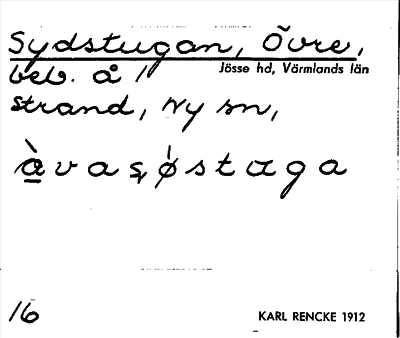 Sydstugan, Övre,
beb. å /
Jösse hd, Värmlands län
strand, Ny sn,
16
KARL RENCKE 1912